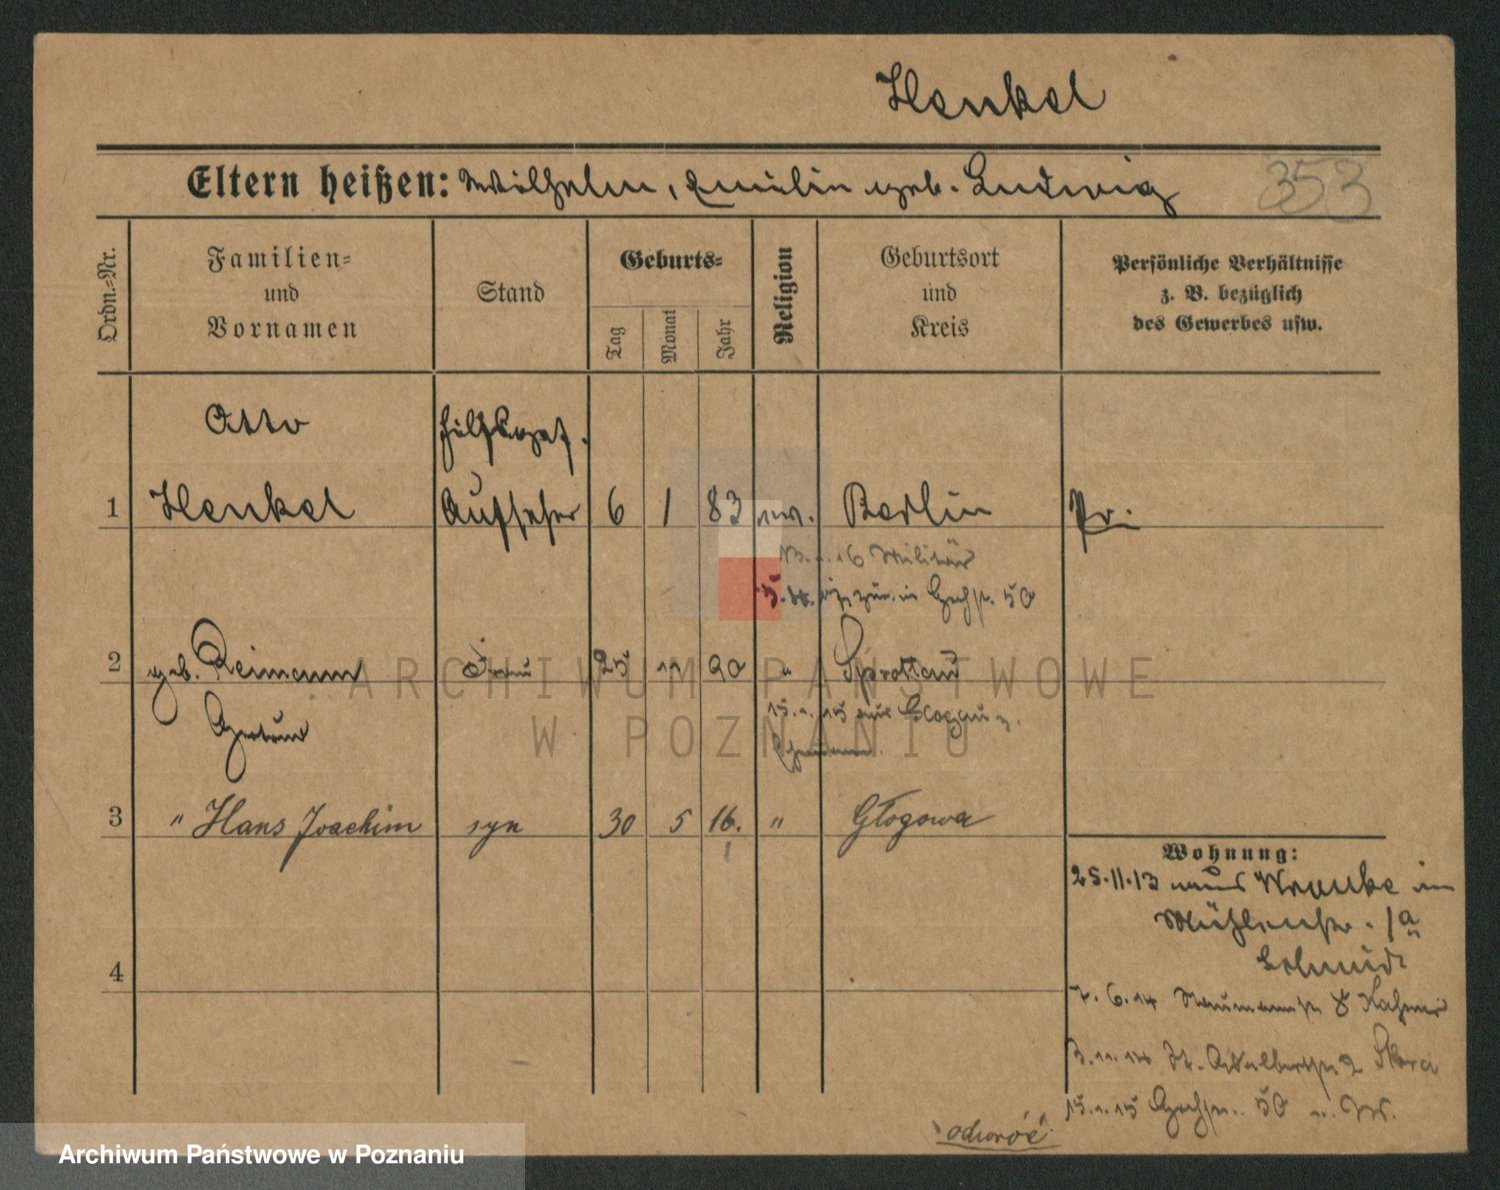 Henkel
Eltern heißen: Wilhelm, Emilie geb. Ludwig 353
Ordn.-Nr.
Familien-
und
Vornamen
Stand
Geburts-
Tag
Monat
Jahr
Religion
Geburtsort
und
Kreis
Persönliche Verhältnisse
z. B. bezüglich
des Gewerbes usw.
Otto
1 Henkel Aufseher 6 1 83 ev. Berlin Pr.
16 Militär
50
2 geb. Reimann Frau 25 11 90 " Sprottau
15.1.15 aus Glogau z.
Ehemann.
Gertrud
3 " Hans Joachim syn 30 5 16. " Głogowa
Wohnung:
25.11.13 aus Wronke in
Mühlenstr. 1a
Schmidt
4
7.6.14 Naumannstr 8
3.11.14 St. Adalbertstr 2 Skora
15.1.15 50
odwróć
ARCHIWUM PAŃSTWOWE
W POZNANIU
Archiwum Państwowe w Poznaniu